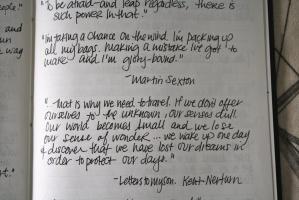 "To be afraid and leap regardless, there is
such power in that."
"I'm taking a chance on the wind. I'm packing up
all my bags. Making a mistake I've got to
make and I'm glory-bound."
-Martin Sexton
"That is why we need to travel. If we don't offer
ourselves to the unknown, our senses dull.
Our world becomes small and we lose
our sense of wonder... we wake up one day
& discover that we have lost our dreams in
order to protect our days."
-Letters to my son. Kent Nerburn
way